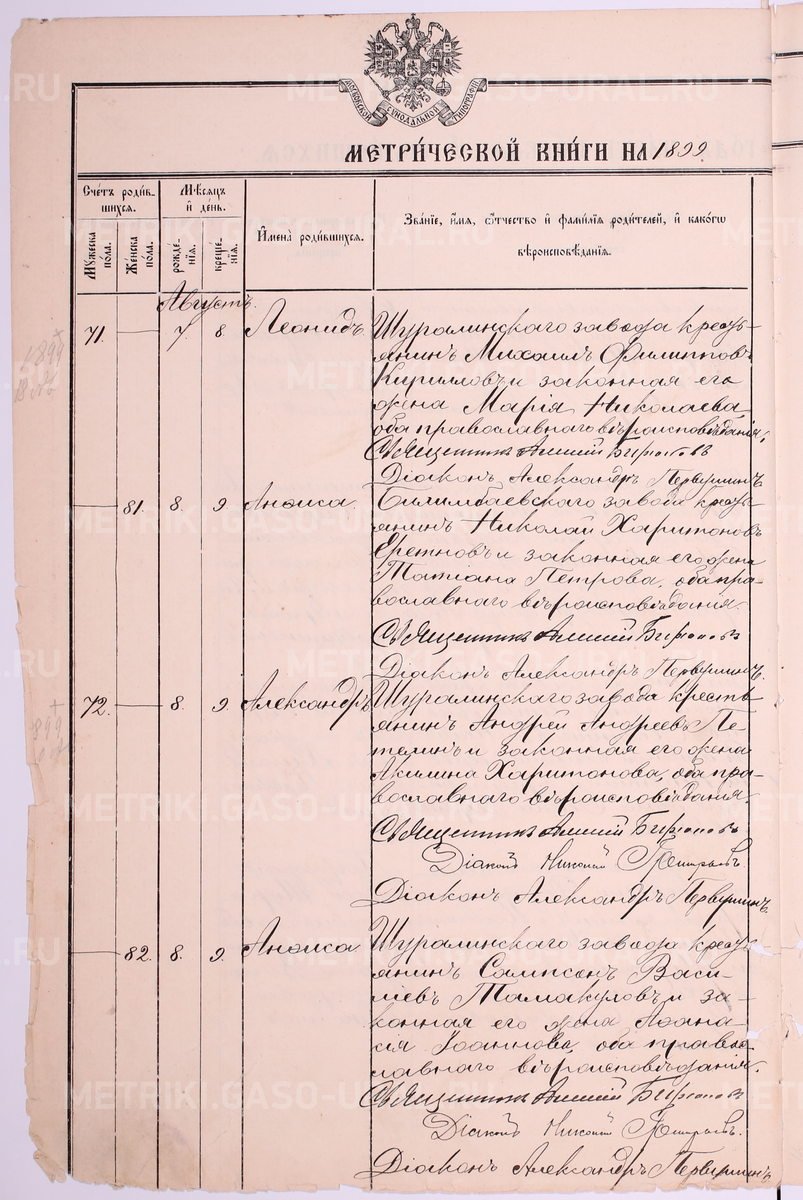 МОСКОВСКОЙ СѴНОДАЛЬНОЙ ТИПОГРАФІИ
МЕТРИ́ЧЕСКОЙ КНИ́ГИ НА 1899
Сче́тъ роди́вшихся.
Мѣ́сяцъ и҆ де́нь.
И҆мена̀ роди́вшихся.
Зва́нїе, и҆́мя, ѻ҆́тчество и҆ фами́лїя роди́телей, и҆ како́гѡ вѣроисповѣ́данїя.
Мꙋ́жеска по́ла.
Же́нска по́ла.
рожде́нїя.
креще́нїя.
Августъ.
71. 7. 8. Леонидъ. Шуралинскаго завода кресть-
янинъ Михаилъ Филипповъ
Кирилловъ и законная его
жена Марія Николаева,
оба православнаго вѣроисповѣданія.
Священникъ Алексій
Діаконъ Александръ Первушинъ
81. 8. 9. Анѳиса. Билимбаевскаго завода кресть-
янинъ Николай Харитоновъ
и законная его жена
Татіана Петрова, оба пра-
вославнаго вѣроисповѣданія.
Священникъ Алексій
Діаконъ Александръ Первушинъ.
72. 8. 9. Александръ Шуралинскаго завода кресть-
янинъ Андрей Андреевъ Пе-
телинъ и законная его жена
Акилина Харитонова, оба пра-
вославнаго вѣроисповѣданія.
Священникъ Алексій
Діаконъ Николай
Діаконъ Александръ Первушинъ.
82. 8. 9. Анѳиса Шуралинскаго завода кресть-
янинъ Сампсонъ Васи-
ліевъ Тамакуловъ и за-
конная его жена Аѳана-
сія Іоаннова, оба право-
славнаго вѣроисповѣданія.
Священникъ Алексій
Діаконъ Николай
Діаконъ Александръ Первушинъ
1899
METRIKI.GASO-URAL.RU